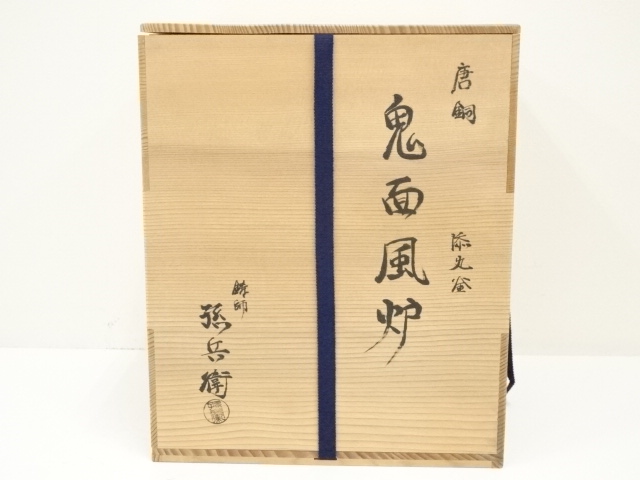 唐銅
鬼面風炉
添丸釜
鋳師
孫兵衛